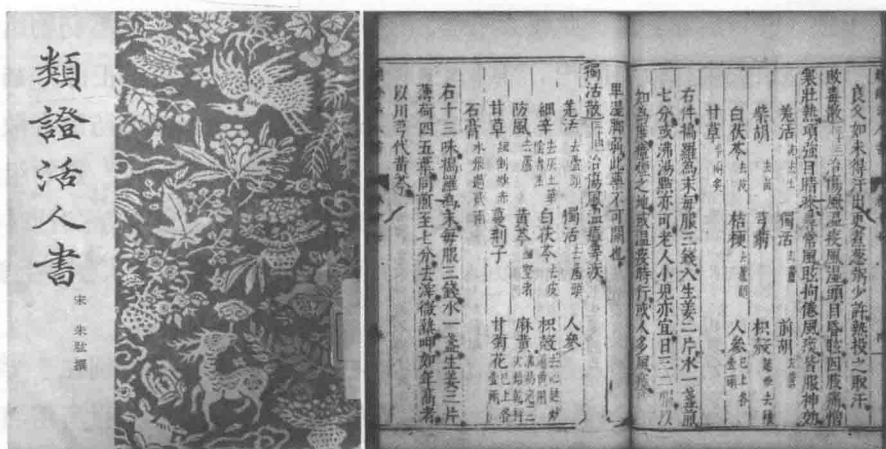 類證活人書
宋 朱肱撰
良久如未得汗出更煮葱粥少許熱投之取汗
敗毒散 治傷風溫疫風濕頭目昏眩四肢痛憎
寒壯熱項強目睛疼尋常風眩拘倦風痰皆服神効
羌活 獨活 前胡
柴胡 芎藭 枳殼
白茯苓 桔梗 人參 已上各壹兩
甘草
右件搗羅為末每服三錢入生姜二片水一盞煎
七分或沸湯點亦可老人小兒亦宜日三二服以
知為度瘴煙之地或溫疫時行或人多風痰
卑濕脚弱此藥不可闕也
獨活散 治傷風溫瘴等疾
羌活 去蘆頭 獨活 去蘆頭 人參
細辛 白茯苓 去皮 枳殼
防風 去蘆 黃芩 麻黃
甘草 蔓荊子 甘菊花
石膏
右十三味搗羅為末每服三錢水一盞生姜三片
薄荷四五葉同煎至七分去滓微熱呷如年高者
以川芎代黃芩